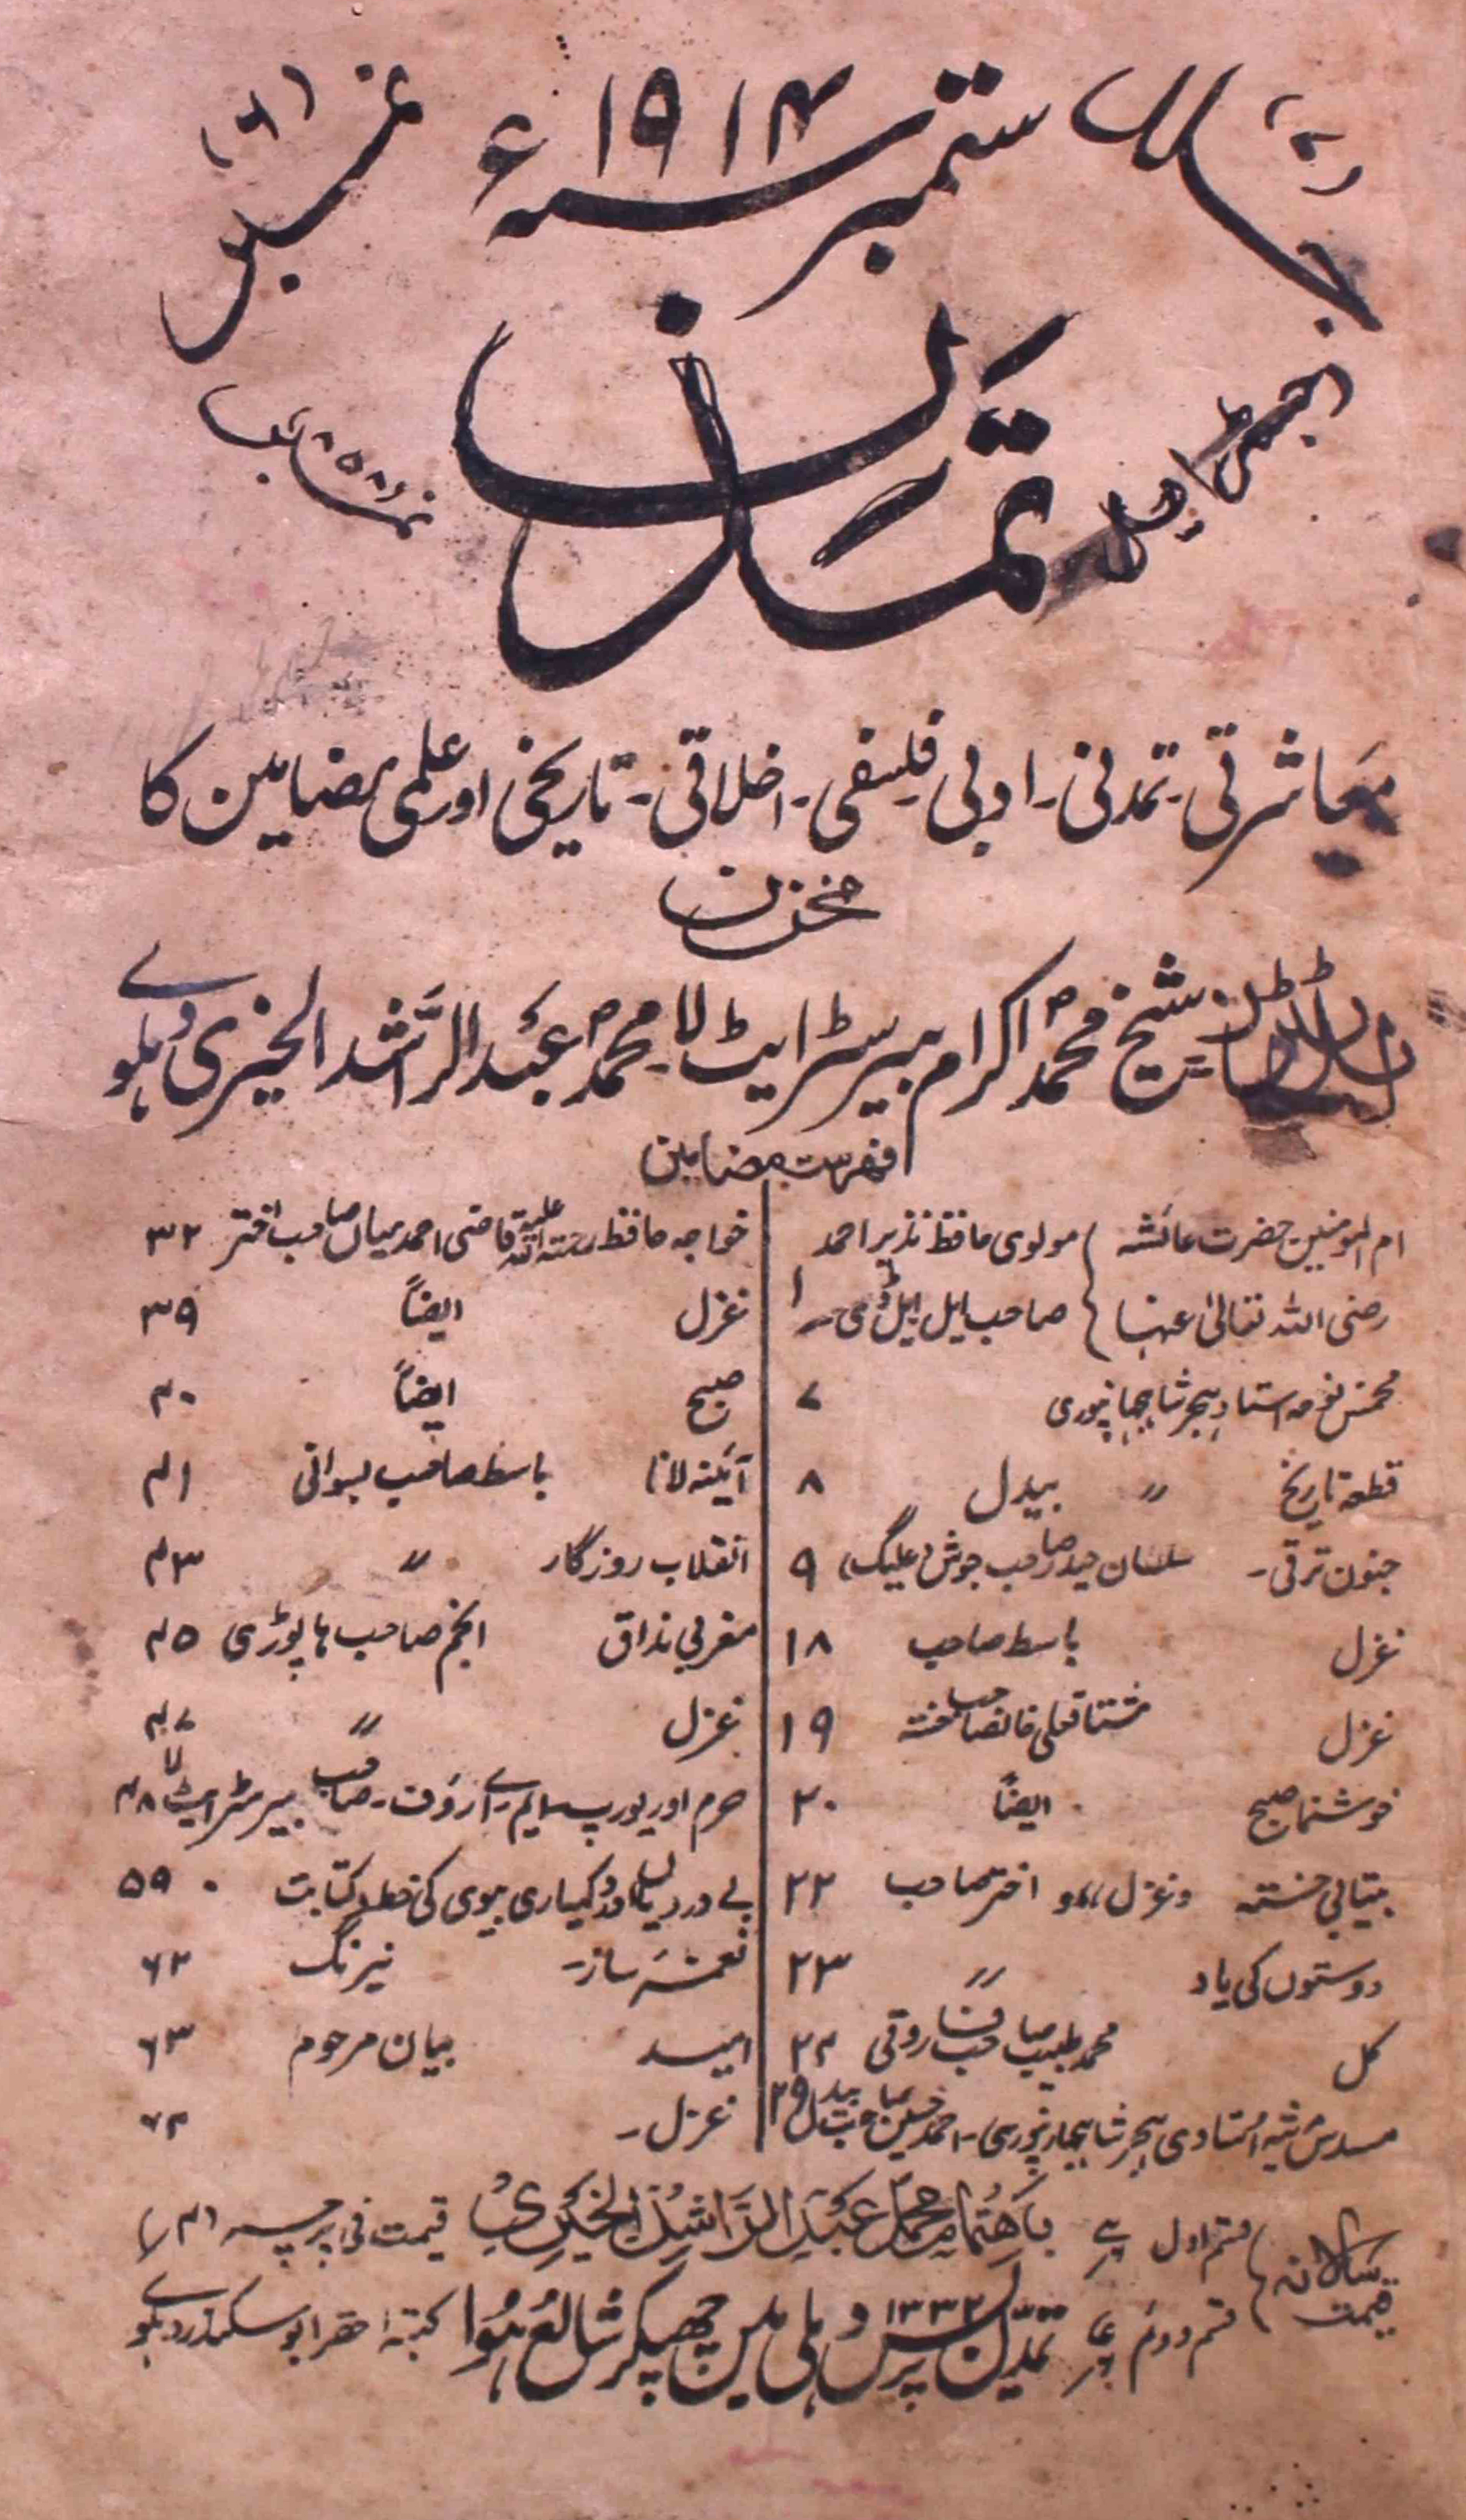 جلد
ستمبر سنہ ۱۹۱۴ء
نمبر (۶)
رجسٹرڈ ایل
نمبر ۸۵۸
تمدن
معاشرتی۔ تمدنی۔ ادبی فلسفی۔ اخلاقی۔ تاریخی اور علمی مضامین کا
مخزن
شیخ محمد اکرام بیرسٹر ایٹ لا۔ محمد عبد الراشد الخیری دہلوی
فہرست مضامین
ام المومنین حضرت عائشہ رضی اللہ تعالیٰ عنہا مولوی حافظ نذیر احمد صاحب ایل ایل ڈی۔ ۱
مخمس نوحہ استاد ہجر شاہجہانپوری ۷
قطعہ تاریخ 〃 بیدل ۸
جنون ترقی۔ سلطان حیدر صاحب جوش (علیگ) ۹
غزل باسط صاحب ۱۸
غزل مشتاق علی خانصاحب خستہ ۱۹
خوشنما صبح ایضاً ۲۰
بیتابی خستہ و غزل اختر صاحب ۲۲
دوستوں کی یاد 〃 ۲۳
کل محمد طبیب صاحب فاروقی ۲۴
مسدس مرثیہ استادی ہجر شاہجہانپوری۔ احمد حسین صاحب بیدل ۲۹
خواجہ حافظ رحمتہ اللہ علیہ قاضی احمد میاں صاحب اختر ۳۲
غزل ایضاً ۳۹
صبح ایضاً ۴۰
آئینہ لانا باسط صاحب بسوانی ۴۱
انقلاب روزگار 〃 ۴۳
مغربی مذاق انجم صاحب ہاپوڑی ۴۵
غزل 〃 ۴۷
حرم اور یورپ ایم۔ اے روف۔ صاحب بیرسٹر ایٹ لا ۴۸
بے درد میاں اور دکھیاری بیوی کی خط و کتابت ۵۹
نغمۂ ساز۔ نیرنگ ۶۲
امید بیان مرحوم ۶۳
غزل۔ ۶۴
سالانہ قیمت قسم اول قسم دوم
باہتمام محمد عبد الراشد الخیری قیمت فی پرچہ (۴؍)
تمدن پریس دہلی میں چھپکر شائع ہوا ۱۳۳۲